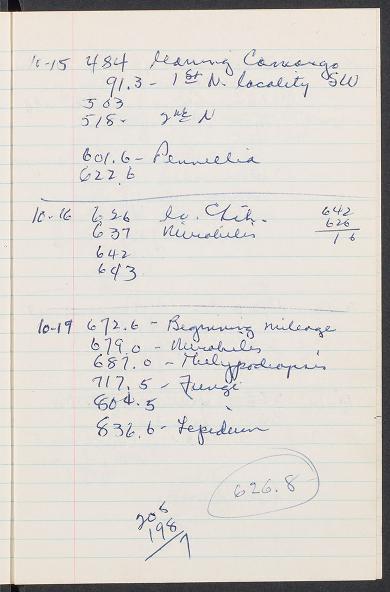 10-15 484 leaving Camargo
91.3 - 1st N. locality SW
503
518 - 2nd N
601.6 - Pennellia
622.6
10-16 626 lv. Chih.
637 Nerisyrenia
642
643
642
626
16
10-19 672.6 - Beginning mileage
679.0 -
687.0 - Thelypodiopsis
717.5 - Fungi
804.5
836.6 - Lepidium
626.8
206
198